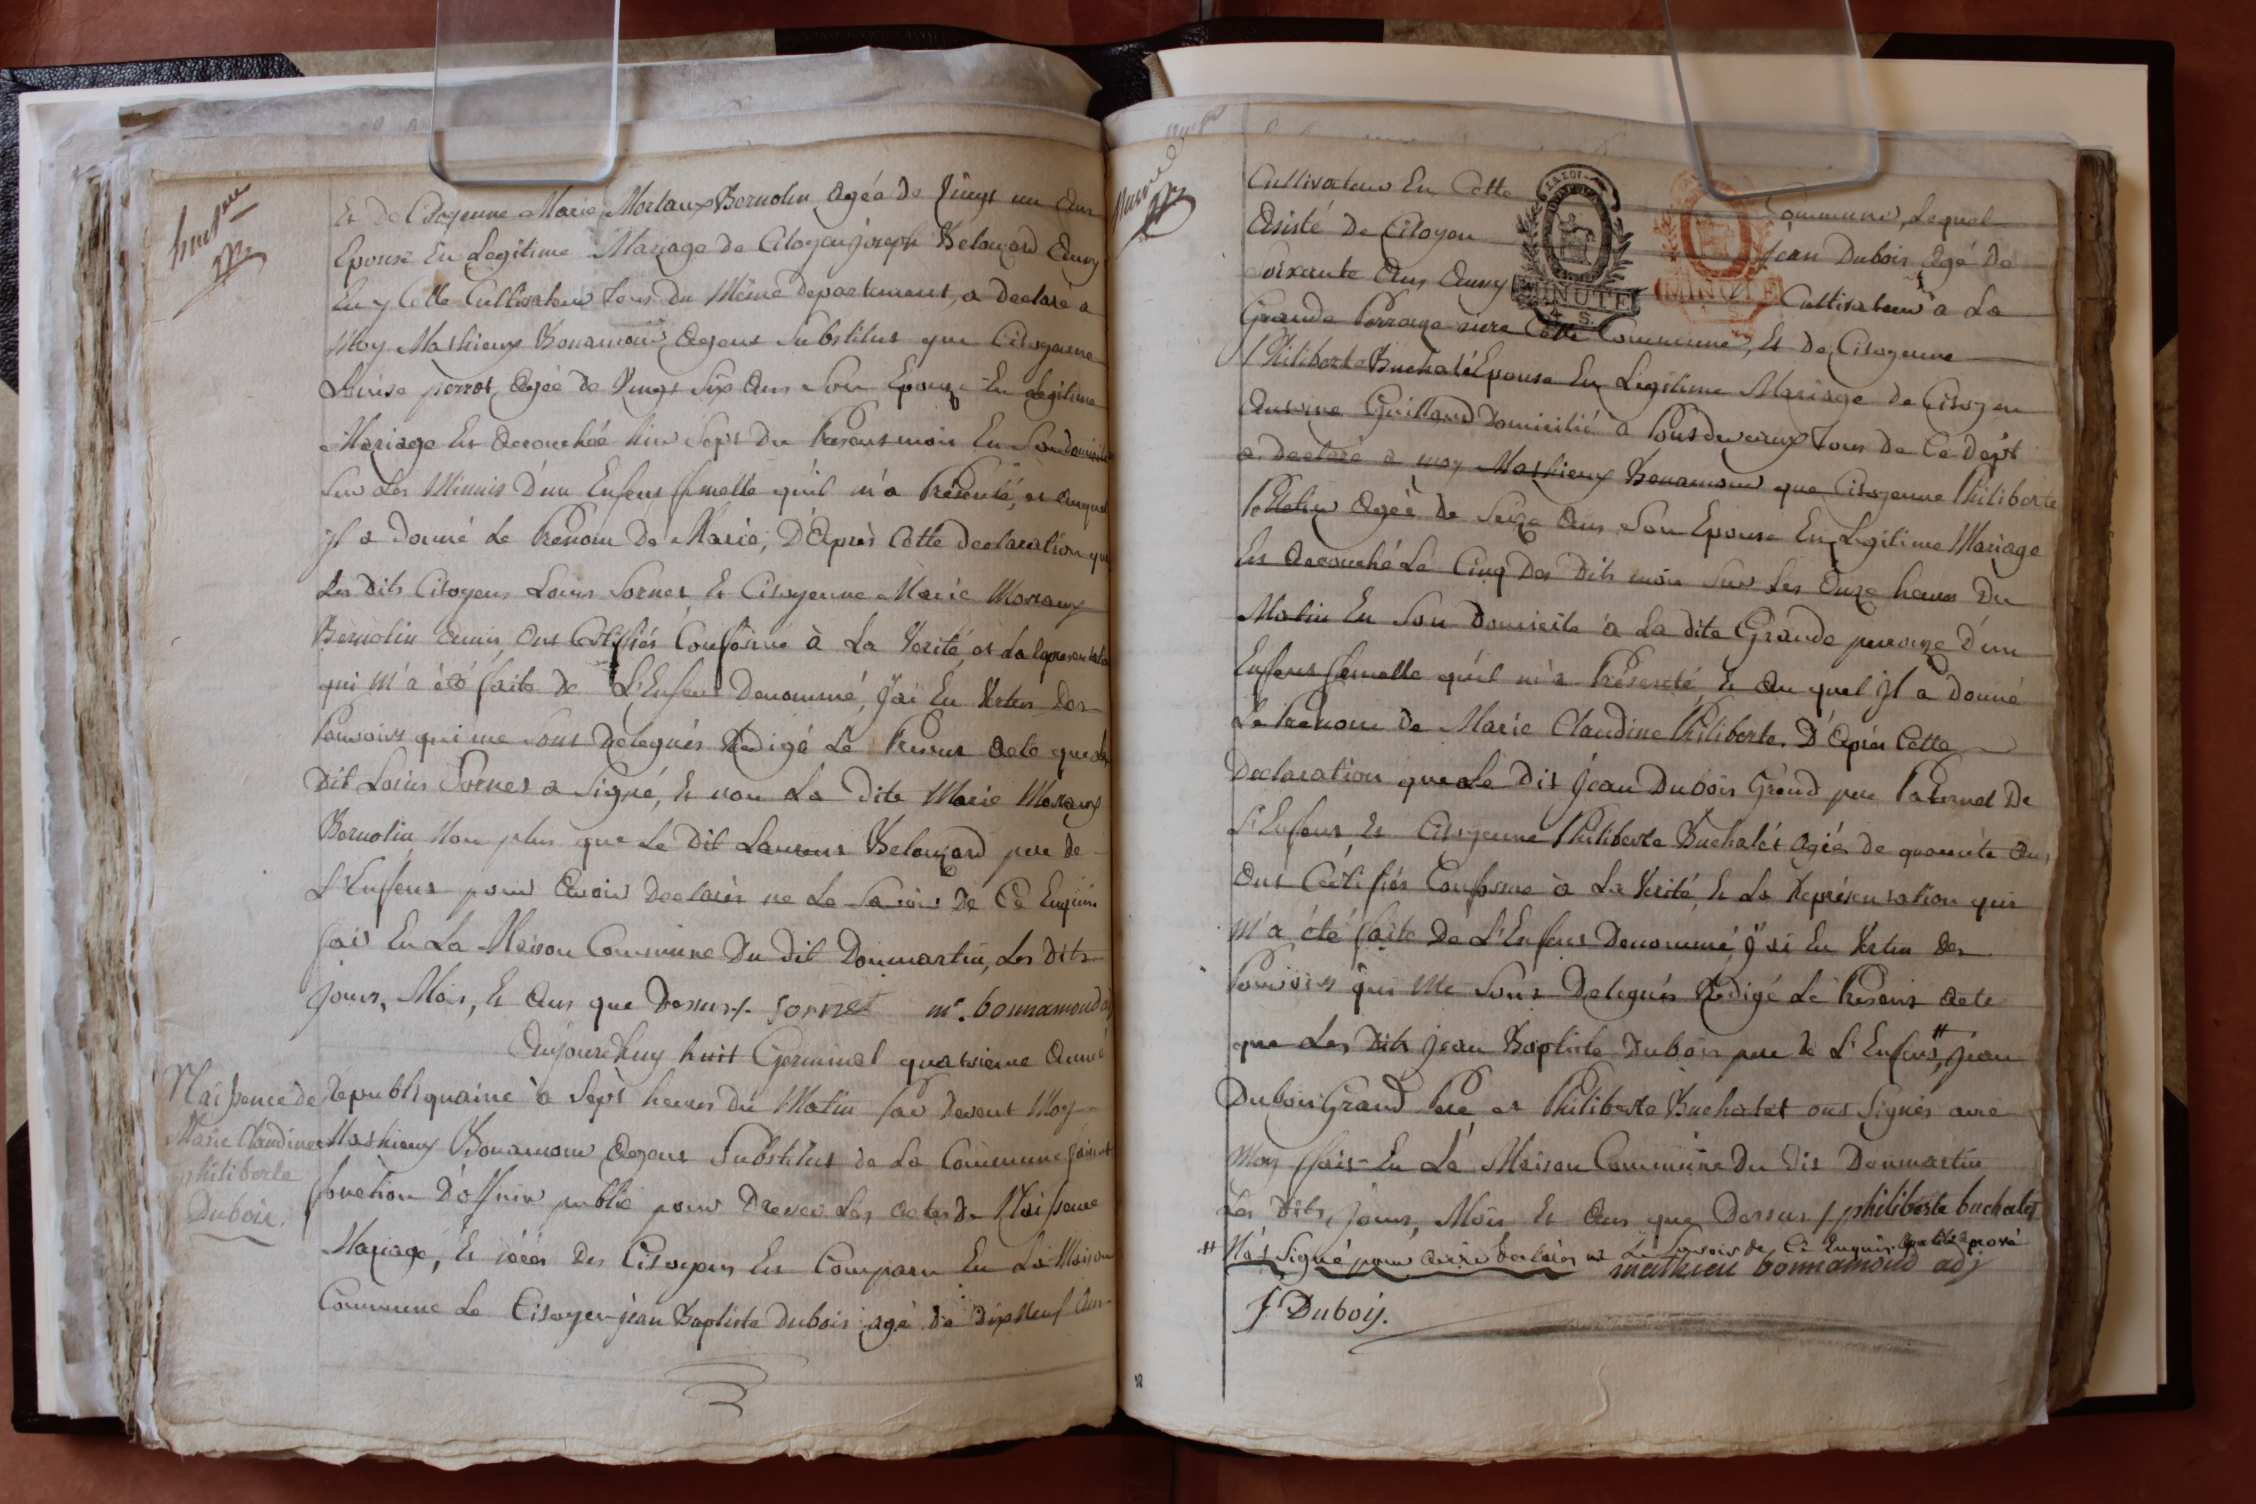 Et De Citoyenne Marie Moraux Bernolin agéé de Vingt un ans
Epouse En Legitime Mariage de Citoyen joseph Velouzard
Cultivateur tous du Même departement, a declaré a
Moy Mathieux Bonamour agent Substitut que Citoyenne
perrot, agéé de Vingt Six ans Son Epouse En Legitime
Mariage Et accouchéé hier Sept du Present mois En Son domicile
Sur Les Minuit D'un Enfent femelle qu'il m'a Présenté, et auquel
jl a Donné Le Prenom De Marie, D'après Cette declaration que
Les dits Citoyens Louis Sornet Et Citoyenne Marie Moraux
Bernolin ont Certiffiés Conforme à La Verité, et La Representation
qui M'a été faite de L'Enfent Denommé, j'ai En Vertu Des
Pouvoirs qui me sont Delegués Redigé Le Present acte que le
Dit Louis Sornet a Signé, Et non La Dite Marie Moraux
Bernolin Non plus que Le Dit Laurent Velouzard pere de
L'Enfent pour avoir declarés ne Le Savoir De Ce Enquis
fait En La Maison Commune Du dit Dommartin, Les Dits
jours, Mois, Et ans que Dessus /. sornet m.<sup>e</sup> bonnamoud
Aujourd'huy huit Germinal quatrieme anné
Naissence de
Marie Claudine
philiberte
Dubois.
Republiquaine à Sept heures du Matin par Devent Moy
Mathieux Bonamour agent Substitut de La Commune faisant
fonction D'officier public pour Dresser Les actes De Naissence
Mariage, Et décés Des Citoyens Est Comparu En La Maison
Commune Le Citoyen jean Baptiste Dubois agé de Dix Neuf ans
Cultivateur En Cette Commune, Lequel
Asisté De Citoyen jean Dubois agé De
Soixante ans Cultivateur à La
Grande Perrouze sure Cette Commune, Et De Citoyenne
Philiberte Buchalet Epouse En Legitime Mariage de Citoyen
Antoine Guillaud Domicilié a Tous de Ce Dept
a Declaré a moy Mathieux Bonamour que Citoyenne Philiberte
agéé de Seize ans Son Epouse En Legitime Mariage
Est accouché Le Cinq Des Dits mois Sur Les Onze heures Du
Matin En Son Domicile a La dite Grande perrouze D'un
Enfent femelle qu'il m'a Présenté Et au quel jl a Donné
Le Prenom De Marie Claudine Philiberte. D'après Cette
Declaration que Le Dit jean Dubois Grand pere Paternel De
L'Enfent, Et Citoyenne Philiberte Buchalet agéé de quarente ans
Ont Certiffiés Conforme à La Verité, Et La Représentation qui
M'a été faite De L'Enfent Denommé, j'ai En Vertu Des
Pouvoirs qui Me Sont Delegués Redigé Le Present acte
que Les Dits jean Baptiste Dubois pere de L'Enfent, # jean
Dubois Grand Pere et Philiberte Buchalet ont Signés avec
Moy fait En La Maison Commune Du Dit Dommartin
Les Dits, jours, Mois Et ans que Dessus / philiberte buchalet
# N'a Signé pour avoir declaré ne Le Savoir de Ce Enquis
mathieu bonnamoud adj
J Dubois.
MINUTE
MINUTE